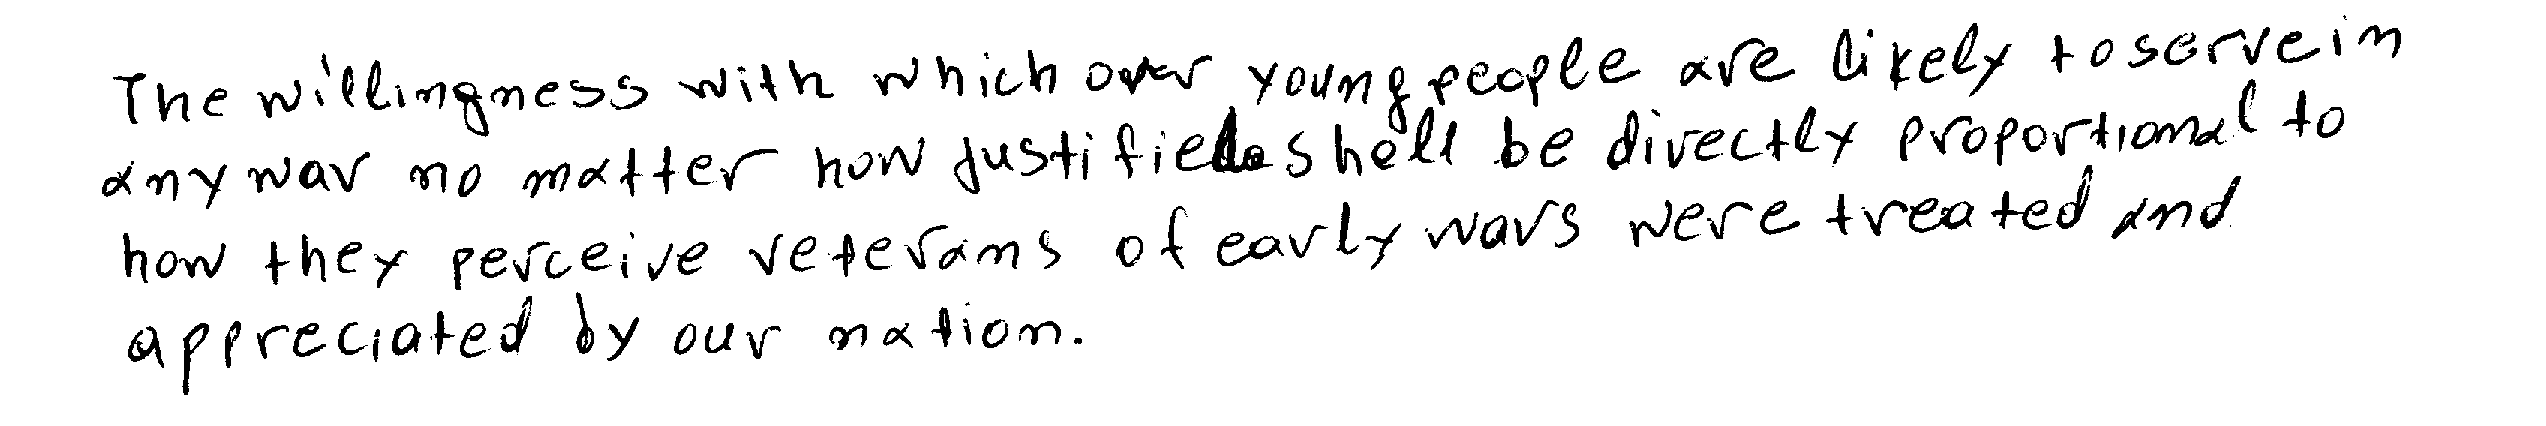 The willingness with which over young people are likely to serve in
any war no matter how justified shall be directly proportional to
how they perceive veterans of early wars were treated and
appreciated by our nation.